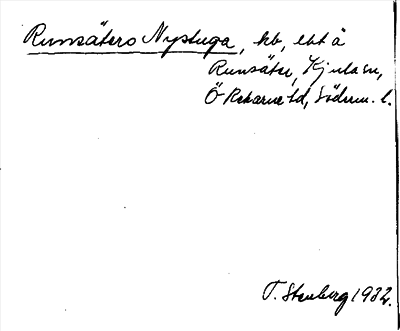 Runsäters Nystuga, hb, ebt å
Runsäter, Kjula sn,
Ö Rekarne hd, Söderm. l.
T. Stenberg 1932.